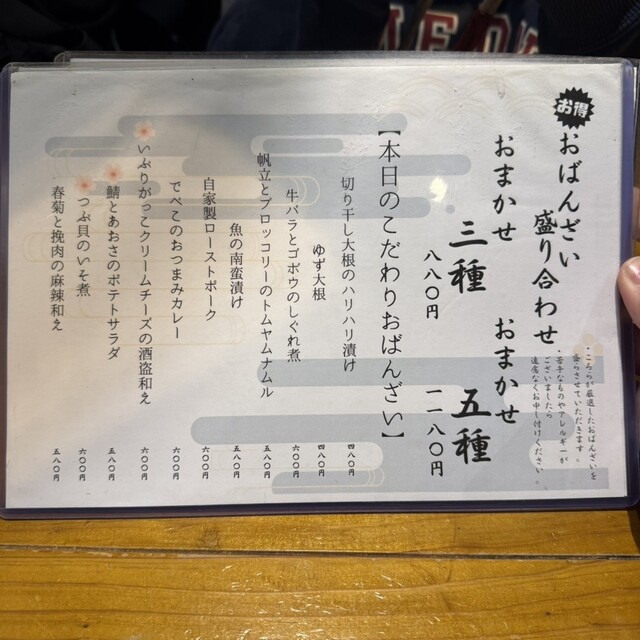 お得
おばんざい
盛り合わせ
・こちらが厳選したおばんざいを
盛らさせていただきます
・苦手なものやアレルギーが
ございましたら
遠慮なくお申し付けください
おまかせ 三種 八八〇円
おまかせ 五種 一一八〇円
【本日のこだわりおばんざい】
切り干し大根のハリハリ漬け 四八〇円
ゆず大根 四八〇円
牛バラとゴボウのしぐれ煮 六〇〇円
帆立とブロッコリーのトムヤムナムル 五八〇円
魚の南蛮漬け 五八〇円
自家製ローストポーク 六〇〇円
でべこのおつまみカレー 六〇〇円
いぶりがっこクリームチーズの酒盗和え 六〇〇円
鯖とあおさのポテトサラダ 五八〇円
つぶ貝のいそ煮 六〇〇円
春菊と挽肉の麻辣和え 五八〇円